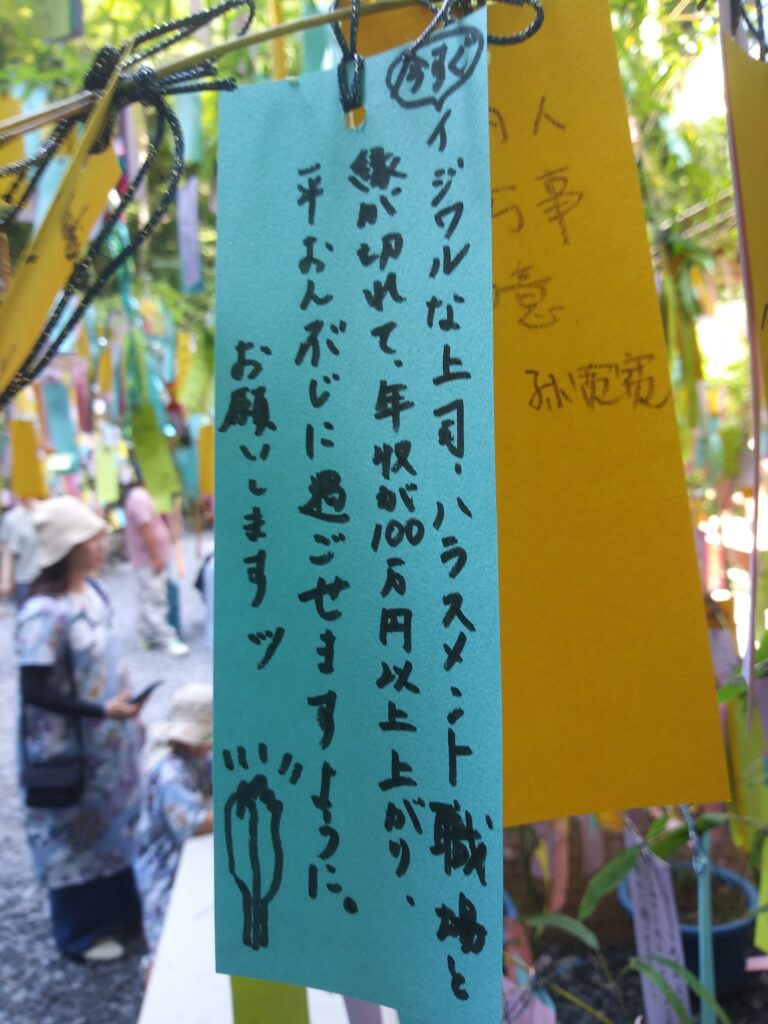 今すぐ
イジワルな上司・ハラスメント職場と
縁が切れて、年収が100万円以上上がり、
平おんぶじに過ごせますように。
お願いしますッ
人
万事
意